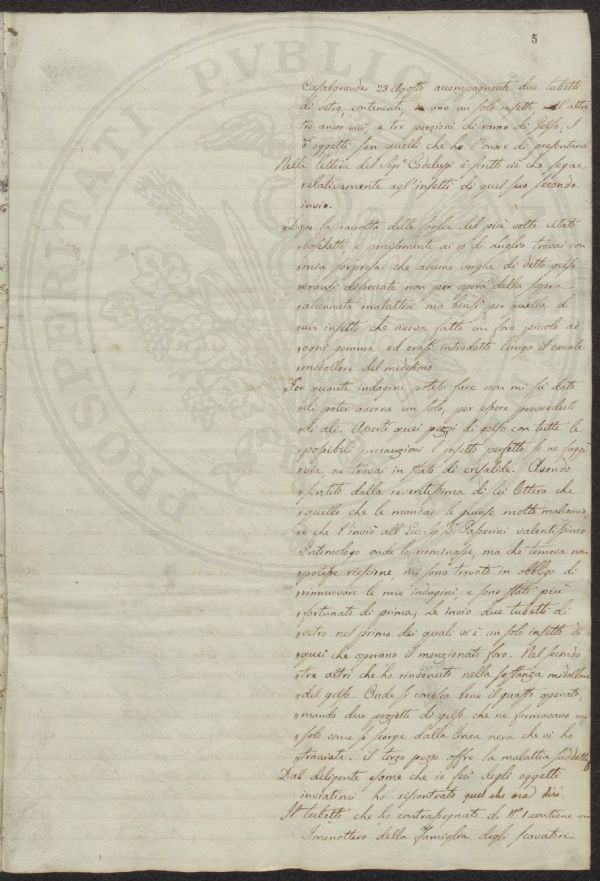 5
Casalgrande 23 Agosto acompagnante due tubetti
di vetro, contenenti, uno un solo insetto nell'altro
tre ancor vivi, e tre porzioni di ramo di Gelso,
oggetti son quelli che ho l'onore di presentarvi
Nella lettera del Sigr. Codeluppi è scritto ciò che segue
relativamente agl'insetti di quel suo secondo
invio.
"Dopo la raccolta delle foglie del più volte citato
"boschetto e precisamente ai 10 di Luglio trovai con
"mia sorpresa che alcune verghe di detto gelso
"eransi disseccate non per opera della sopra
"accennata malattia ma bensì per quella di
"un insetto che aveva fatto un foro piccolo ad
"ogni gemma ed erasi introdotto lungo il canale
"midollare del medesimo
"Per quante indagini potessi fare non mi fù dato
"di poter averne un solo, per essere provveduti
"di ali. Aperti quei pezzi di gelso con tutte le
"possibili precauzioni l'insetto perfetto se ne fuggì
"via, ne trovai in stato di crisalide. Avendo
"sentito dalla reveritissima di lei lettera che
"quello che le mandai le giunse molto malconcio,
"e che l'inviò all' Passerini valentissimo
"Entomologo onde lo nominasse, ma che temeva non
"potesse riescirne, mi sono trovato in obbligo di
"rinnuovare le mie indagini, e sono stato più
"fortunato di prima. Le invio due tubetti di
"vetro nel primo dei quali vi è un solo insetto di
"quei che operano il menzionato foro. Nel secondo
"tre altri che ho rinvenuto nella sostanza midollare
"del gelso. Onde si conosca bene il guasto operato,
"mando due pezzetti di gelso che ne formavano un
"solo come si scorge dalla linea nera che vi ho
"tracciata. il terzo pezzo offre la malattia suddetta
Dal deligente esame che io feci degli oggetti
inviatimi ho riscontrato quel che ora dirò
Il tubetto che ho contrasegnato di No. 1. contiene un
Imenottero della Famiglia degli scavatori